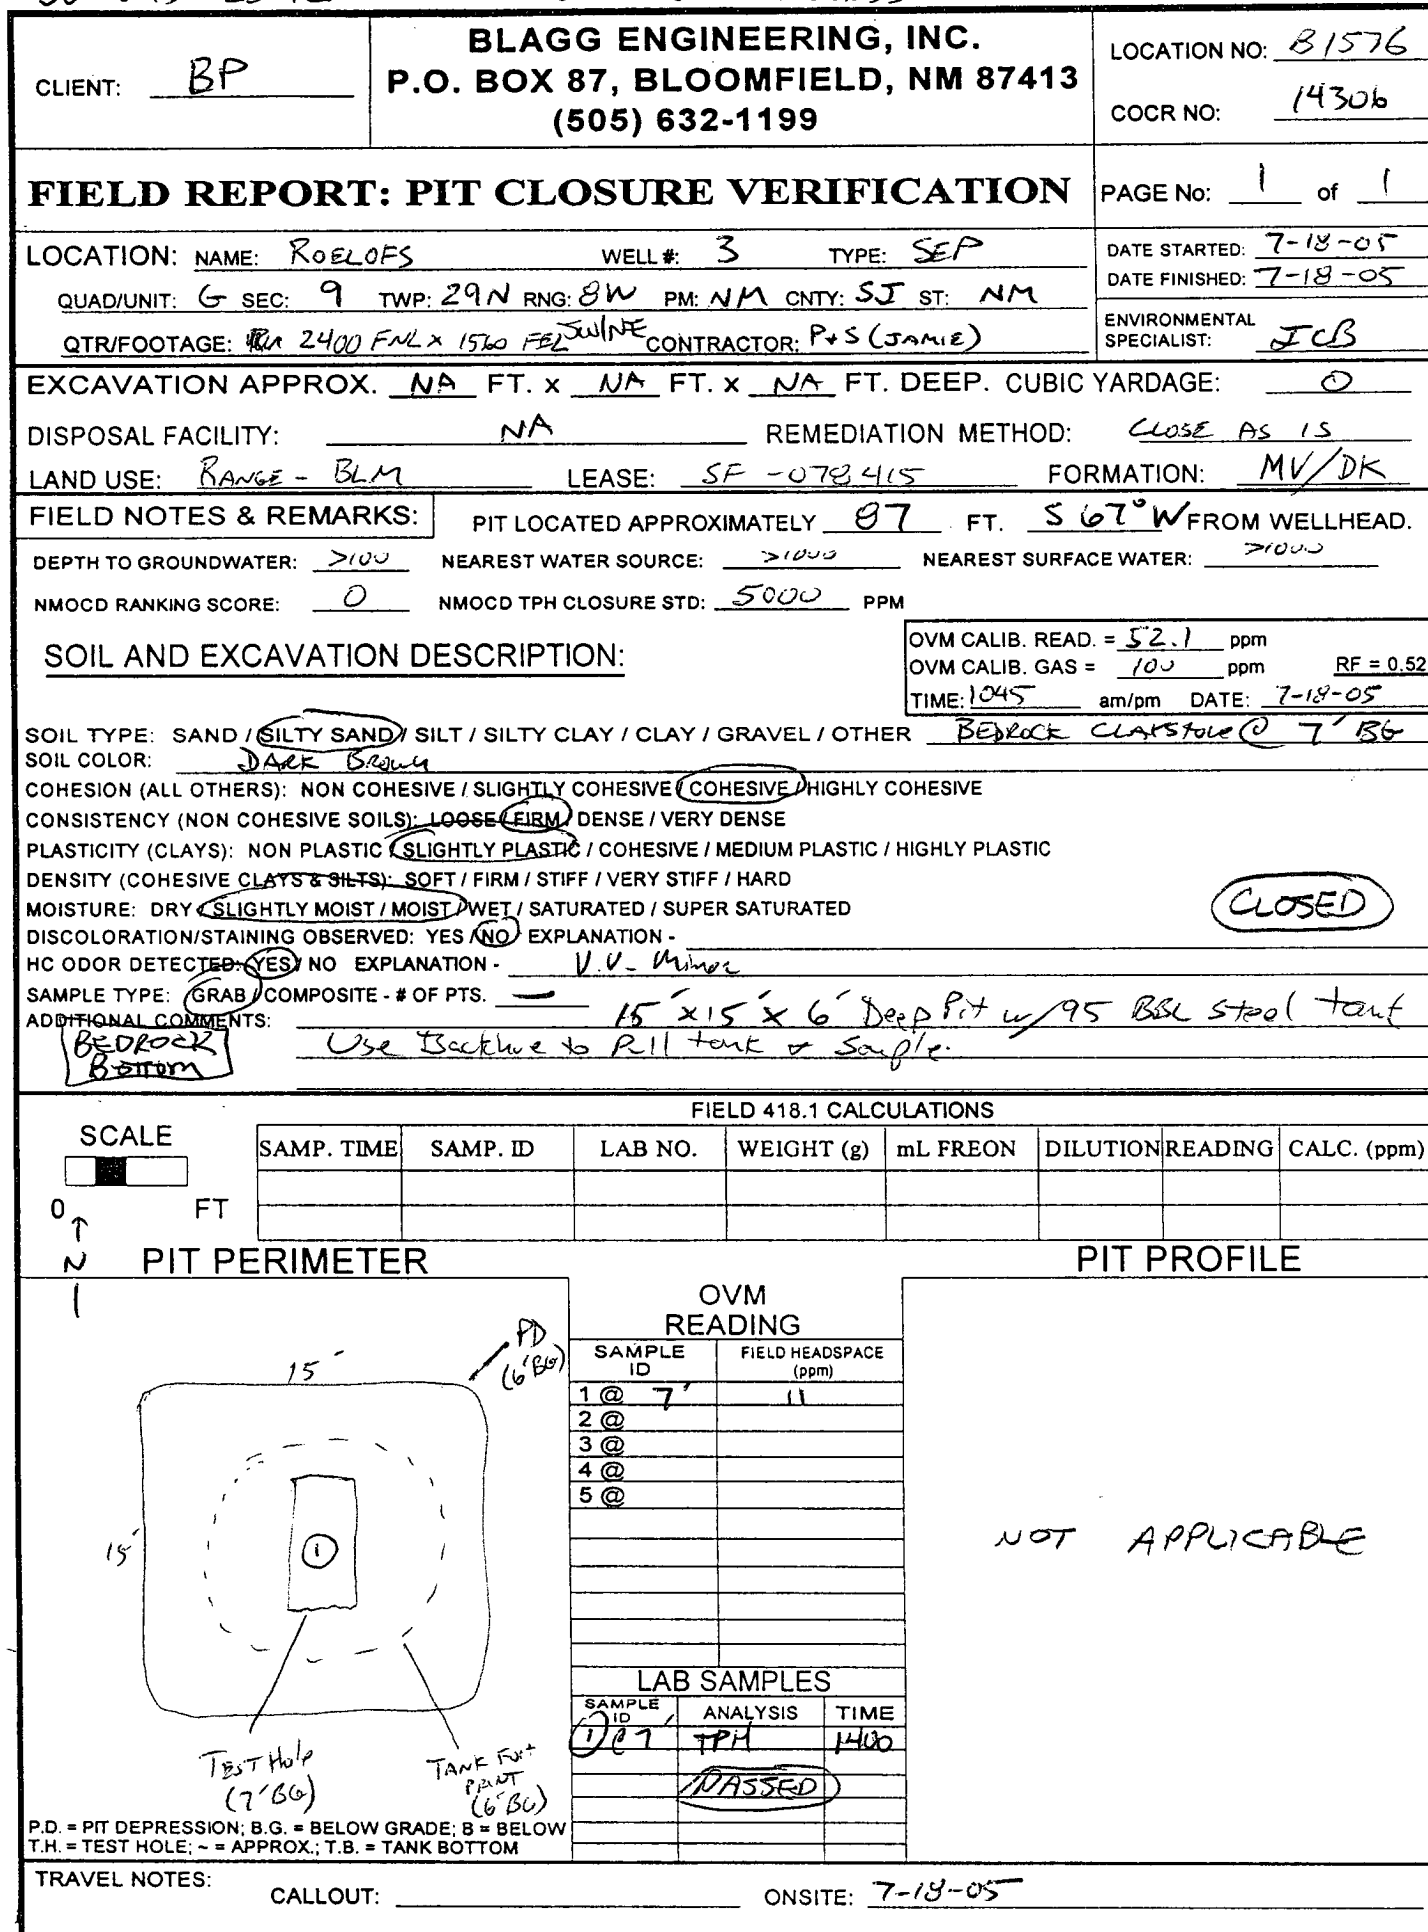 CLIENT: BP
BLAGG ENGINEERING, INC.
P.O. BOX 87, BLOOMFIELD, NM 87413
(505) 632-1199
LOCATION NO: B1576
COCR NO: 14306
FIELD REPORT: PIT CLOSURE VERIFICATION
PAGE No: 1 of 1
LOCATION: NAME: ROELOFS WELL #: 3 TYPE: SEP
QUAD/UNIT: G SEC: 9 TWP: 29N RNG: 8W PM: NM CNTY: SJ ST: NM
QTR/FOOTAGE: 2400 FNL x 1560 FEL SW/NE CONTRACTOR: P+S (JAMIE)
DATE STARTED: 7-18-05
DATE FINISHED: 7-18-05
ENVIRONMENTAL
SPECIALIST: JCB
EXCAVATION APPROX. NA FT. x NA FT. x NA FT. DEEP. CUBIC YARDAGE: 0
DISPOSAL FACILITY: NA REMEDIATION METHOD: CLOSE AS IS
LAND USE: RANGE - BLM LEASE: SF -078415 FORMATION: MV/DK
FIELD NOTES & REMARKS: PIT LOCATED APPROXIMATELY 87 FT. S 67° W FROM WELLHEAD.
DEPTH TO GROUNDWATER: >100 NEAREST WATER SOURCE: >1000 NEAREST SURFACE WATER: >1000
NMOCD RANKING SCORE: 0 NMOCD TPH CLOSURE STD: 5000 PPM
SOIL AND EXCAVATION DESCRIPTION:
OVM CALIB. READ. = 52.1 ppm
OVM CALIB. GAS = 100 ppm RF = 0.52
TIME: 1045 am/pm DATE: 7-18-05
SOIL TYPE: SAND / SILTY SAND / SILT / SILTY CLAY / CLAY / GRAVEL / OTHER BEDROCK CLAYSTONE @ 7' BG
SOIL COLOR: DARK Brown
COHESION (ALL OTHERS): NON COHESIVE / SLIGHTLY COHESIVE / COHESIVE / HIGHLY COHESIVE
CONSISTENCY (NON COHESIVE SOILS): LOOSE / FIRM / DENSE / VERY DENSE
PLASTICITY (CLAYS): NON PLASTIC / SLIGHTLY PLASTIC / COHESIVE / MEDIUM PLASTIC / HIGHLY PLASTIC
DENSITY (COHESIVE CLAYS & SILTS): SOFT / FIRM / STIFF / VERY STIFF / HARD
MOISTURE: DRY / SLIGHTLY MOIST / MOIST / WET / SATURATED / SUPER SATURATED
CLOSED
DISCOLORATION/STAINING OBSERVED: YES / NO EXPLANATION -
HC ODOR DETECTED: YES / NO EXPLANATION - V.V. Minor
SAMPLE TYPE: GRAB / COMPOSITE - # OF PTS. —
ADDITIONAL COMMENTS: 15' x 15' x 6' Deep Pit w/ 95 BBL Steel tank
BEDROCK
BOTTOM
Use Backhoe to Pull tank & Sample.
FIELD 418.1 CALCULATIONS
SCALE
0 FT
SAMP. TIME SAMP. ID LAB NO. WEIGHT (g) mL FREON DILUTION READING CALC. (ppm)
N
PIT PERIMETER
PIT PROFILE
OVM
READING
SAMPLE
ID
FIELD HEADSPACE
(ppm)
1 @ 7' 11
2 @
3 @
4 @
5 @
PD
(6'BG)
15'
15'
1
TEST Hole
(7'BG)
TANK Foot
PRINT
(6'BG)
NOT APPLICABLE
LAB SAMPLES
SAMPLE
ID ANALYSIS TIME
1 @ 7' TPH 1400
PASSED
P.D. = PIT DEPRESSION; B.G. = BELOW GRADE; B = BELOW
T.H. = TEST HOLE; ~ = APPROX.; T.B. = TANK BOTTOM
TRAVEL NOTES: CALLOUT: ONSITE: 7-18-05